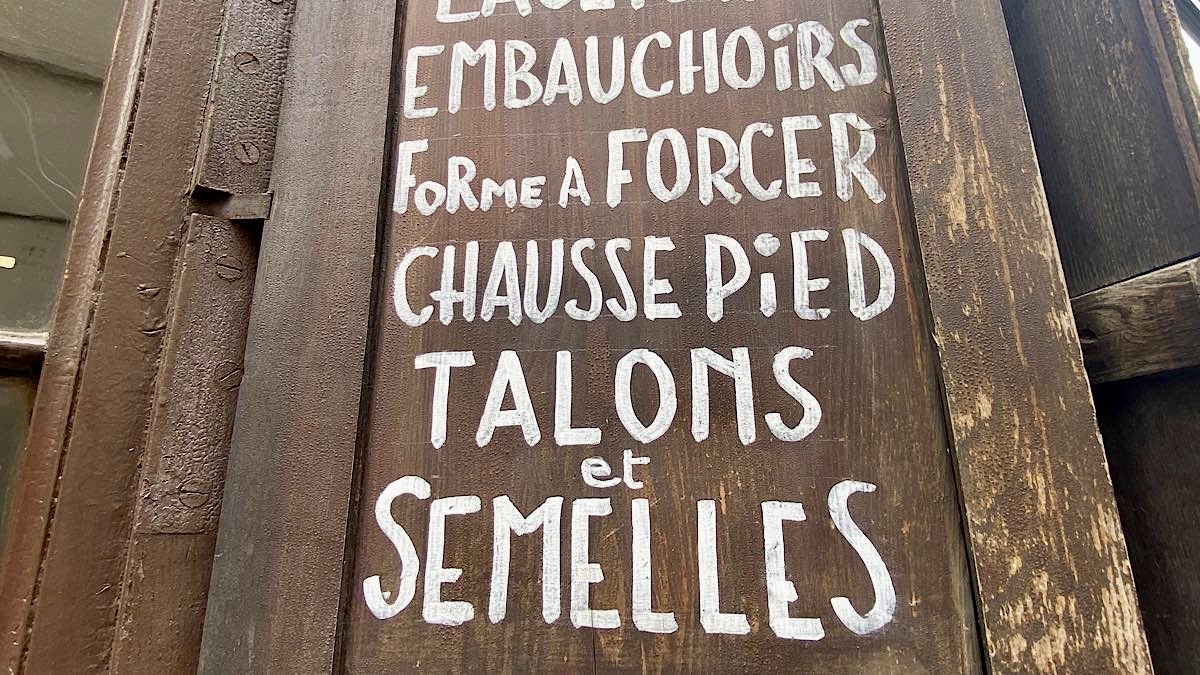 EMBAUCHOiRS
FoRme A FORCER
CHAUSSE PiED
TALONS
et
SEMELLES